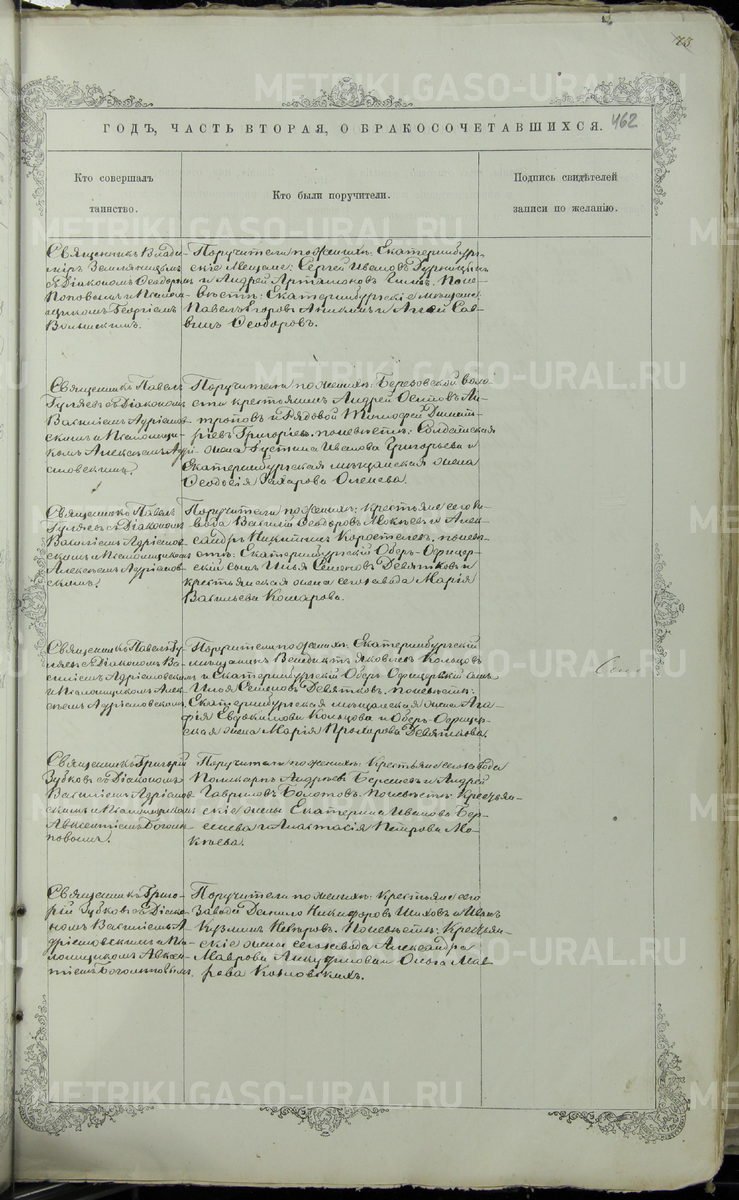 73
ГОДЪ, ЧАСТЬ ВТОРАЯ, О БРАКОСОЧЕТАВШИХСЯ.
462
Кто совершалъ
таинство.
Кто были поручители.
Подпись свидѣтелей
записи по желанію.
Священникъ Влади-
міръ Земляницынъ
съ Діакономъ Ѳеодоромъ
Поповымъ и Псалом-
щикомъ Георгіемъ
Поручители по женихѣ: Екатеринбург-
скіе Мещане: Сергѣй Ивановъ
и Андрей Артамоновъ по не-
вѣстѣ: Екатеринбургскіе мѣщане
Павелъ Егоровъ и Сав-
винъ Ѳеодоровъ.
Священникъ Павелъ
Гуляевъ съ Діакономъ
Василіемъ Адріанов-
скимъ и Псаломщи-
комъ Алексѣемъ Адрі-
ановскимъ.
Поручители по женихѣ: Березовской воло-
сти крестьянинъ Андрей Осиповъ Ан-
троповъ и Рядовой Тимофей Димит-
ріевъ Григорьевъ. по невѣстѣ: Солдатская
жена Іустина Иванова Григорьева и
Екатеринбургская мѣщанская жена
Ѳеодосія Захарова Оленева.
Священникъ Павелъ
Гуляевъ съ Діакономъ
Василіемъ Адріанов-
скимъ и Псаломщикомъ
Алексѣемъ Адріанов-
скимъ.
Поручители по женихѣ: Крестьяне сего за-
вода Василій Ѳеодоровъ Мокѣевъ и Алек-
сандръ Никитинъ Коростелевъ, по невѣ-
стѣ: Екатеринбургскій Оберъ-Офицер-
скій сынъ Илья Семеновъ Девятковъ и
крестьянская жена сего завода Марія
Васильева Комарова.
Священникъ Павелъ Гу-
ляевъ съ Діакономъ Ва-
силіемъ Адріановскимъ
и Псаломщикомъ Алек-
сѣемъ Адріановскимъ.
Поручители по женихѣ: Екатеринбургскій
мѣщанинъ Венедиктъ Яковлевъ Кольцовъ
и Екатеринбургскій Оберъ-Офицерскій сынъ
Илья Семеновъ Девятковъ. по невѣстѣ:
Екатеринбургская мѣщанская жена Ага-
фія Евдокимова Кольцова и Оберъ-Офицер-
ская жена Марія Прохорова Девяткова.
Священникъ Григорій
Зубковъ съ Діакономъ
Василіемъ Адріанов-
скимъ и Псаломщикомъ
Авксентіемъ Богомъ-
повымъ.
Поручители по женихѣ: Крестьяне сего завода
Поликарпъ Андреевъ Берсеневъ и Андрей
Гавриловъ Болотовъ. По невѣстѣ: Крестьян-
скіе жены Екатерина Иванова Бер-
сенева и Анастасія Петрова Мо-
кѣева.
Священникъ Григо-
рій Зубковъ съ Діако-
номъ Василіемъ А-
дріановскимъ и Пса-
ломщикомъ Авксен-
тіемъ
Поручители по женихѣ: Крестьяне сего
завода Данило Никифоровъ и Иванъ
Кузминъ Петровъ. По невѣстѣ: Крестьян-
скіе жены сего завода Александра
Маврова и Ольга Мав-
рова Козловскихъ.
METRIKI.GASO-URAL.RU
METRIKI.GASO-URAL.RU
METRIKI.GASO-URAL.RU
METRIKI.GASO-URAL.RU
METRIKI.GASO-URAL.RU
METRIKI.GASO-URAL.RU
METRIKI.GASO-URAL.RU